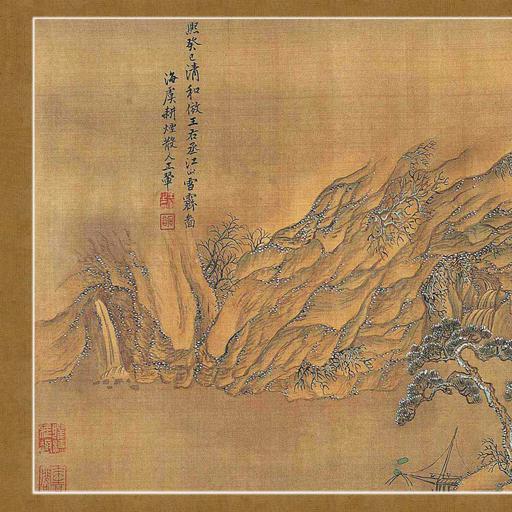 熙癸巳清和倣王右丞江山雪霽啚
海虞耕煙散人王翬